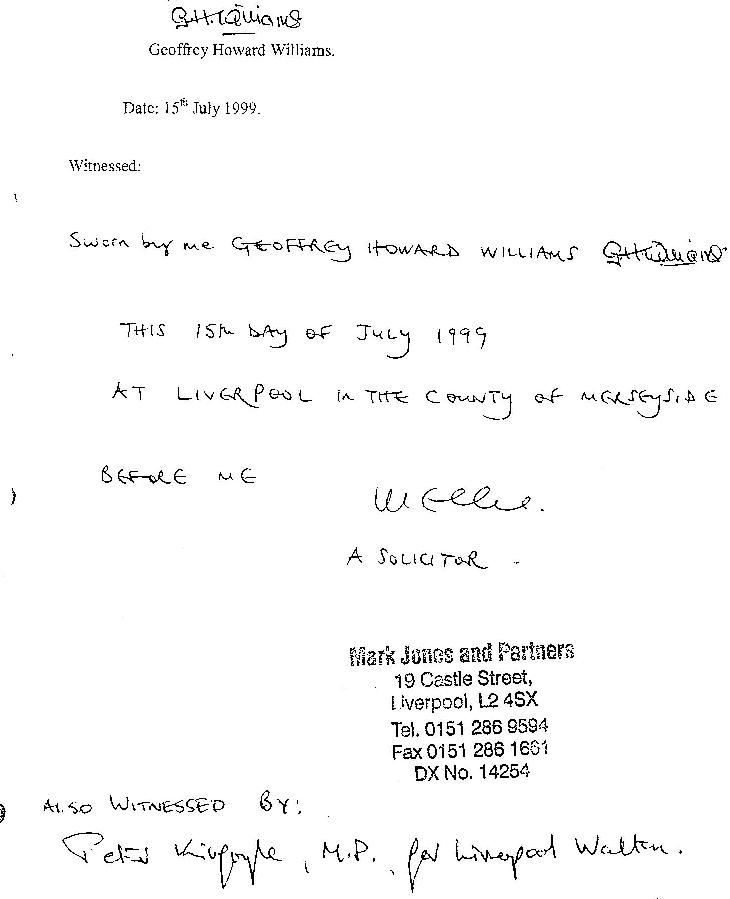 G.H.Williams
Geoffrey Howard Williams.
Date: 15th July 1999.
Witnessed:
Sworn by me GEOFFREY HOWARD WILLIAMS G.H.Williams
THIS 15th DAY OF JULY 1999
AT LIVERPOOL IN THE COUNTY OF MERSEYSIDE
BEFORE ME
A SOLICITOR
Mark Jones and Partners
19 Castle Street,
Liverpool, L2 4SX
Tel. 0151 286 9594
Fax 0151 286 1661
DX No. 14254
ALSO WITNESSED BY:
Peter Kilfoyle, M.P., for Liverpool Walton.